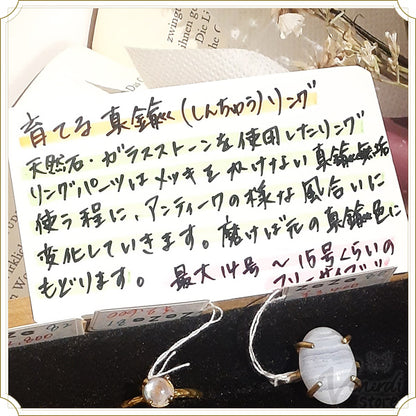 育てる 真鍮(しんちゅう)リング
天然石・ガラスストーンを使用したリング
リングパーツはメッキをかけない真鍮無垢
使う程に、アンティークの様な風合いに
変化していきます。磨けば元の真鍮色に
もどります。 最大14号〜15号くらいの
フリーサイズ